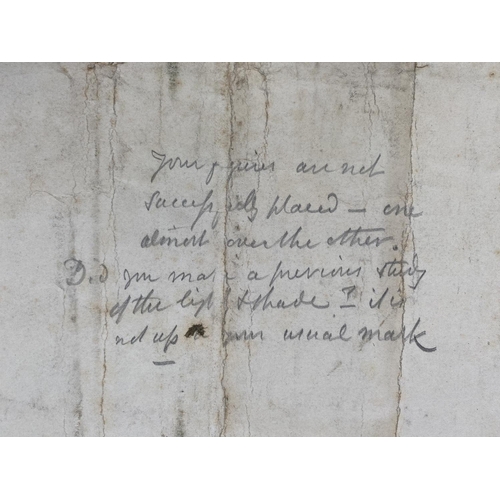 Your figures are not
successfully placed – one
almost over the other.
Did you make a previous study
of the light & shade? it is
not up to your usual mark